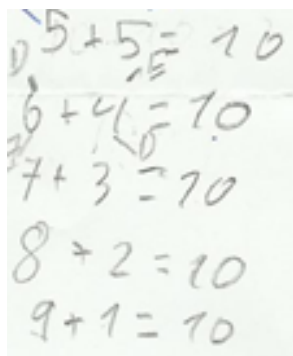 5 + 5 = 10
6 + 4 = 10
7 + 3 = 10
8 + 2 = 10
9 + 1 = 10